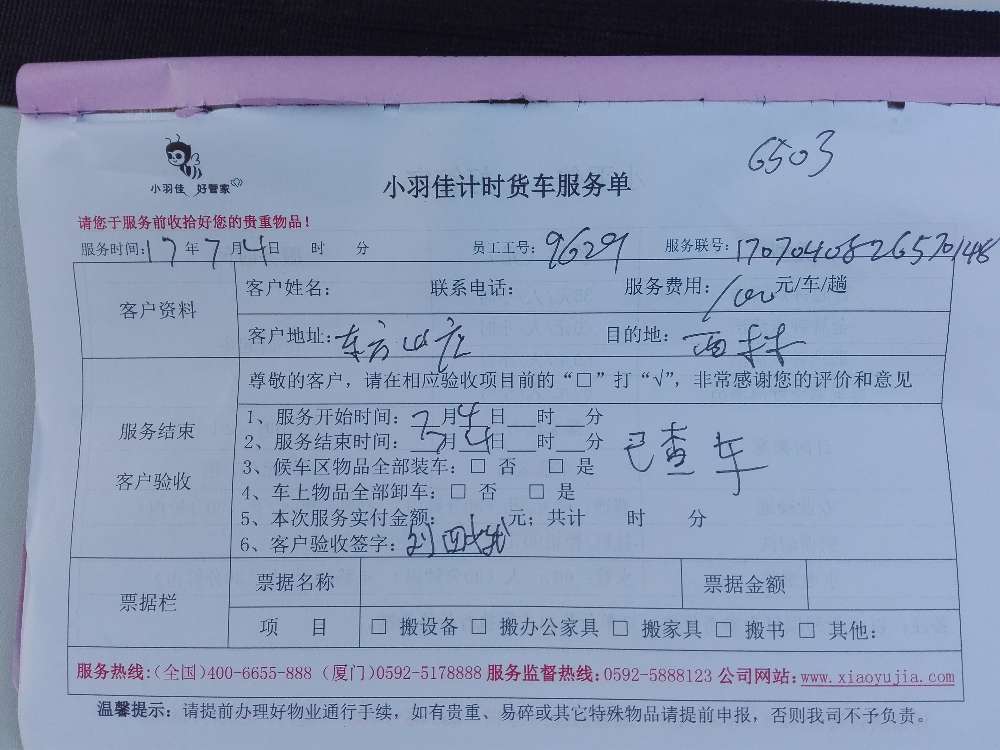 6503
小羽佳 好管家
小羽佳计时货车服务单
请您于服务前收拾好您的贵重物品！
服务时间：17年7月4日 时 分 员工工号：9629 服务联号：1707040826570148
客户资料 客户姓名： 联系电话： 服务费用：100元/车/趟
客户地址：东方山庄 目的地：西林
尊敬的客户，请在相应验收项目前的“□”打“√”，非常感谢您的评价和意见
服务结束
客户验收
1、服务开始时间：7月4日___时___分
2、服务结束时间：7月4日___时___分
已查车
3、候车区物品全部装车：□ 否 □ 是
4、车上物品全部卸车：□ 否 □ 是
5、本次服务实付金额： 元；共计 时 分
6、客户验收签字：
票据栏 票据名称 票据金额
项 目 □ 搬设备 □ 搬办公家具 □ 搬家具 □ 搬书 □ 其他：
服务热线：（全国）400-6655-888（厦门）0592-5178888 服务监督热线：0592-5888123 公司网站：www.xiaoyujia.com
温馨提示：请提前办理好物业通行手续，如有贵重、易碎或其它特殊物品请提前申报，否则我司不予负责。